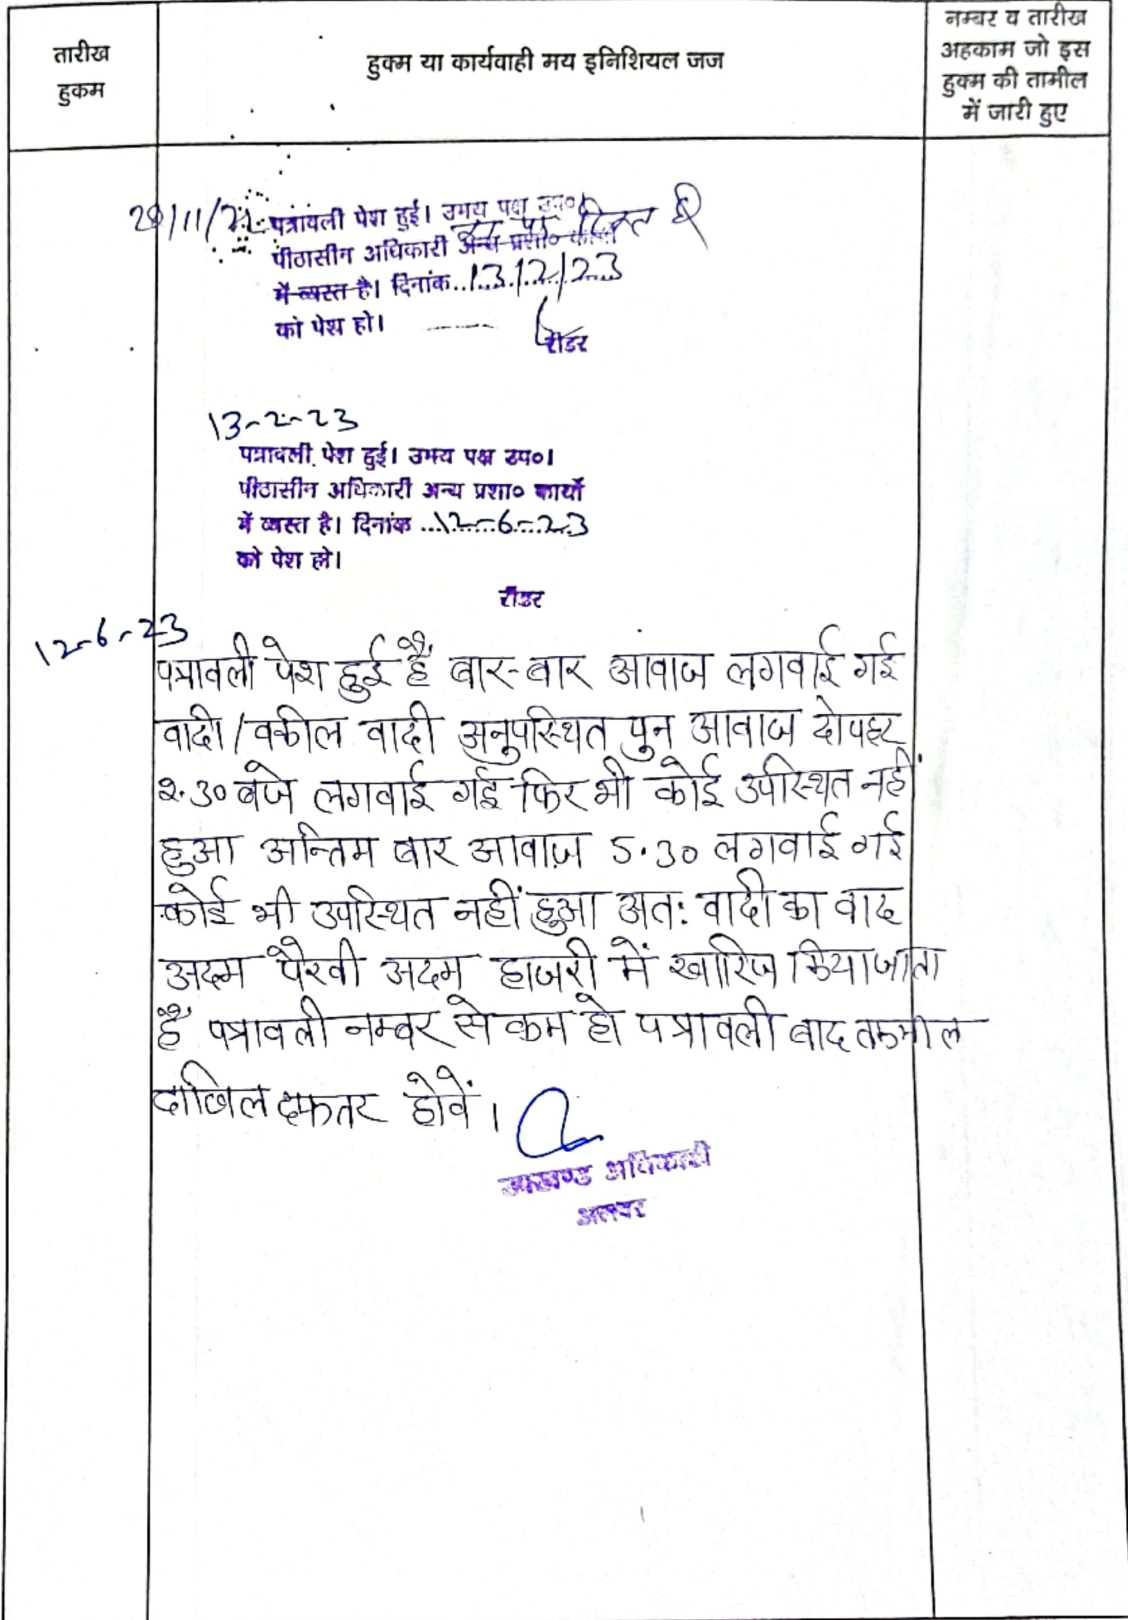 तारीख
हुकम
हुक्म या कार्यवाही मय इनिशियल जज
नम्बर व तारीख
अहकाम जो इस
हुक्म की तामील
में जारी हुए
पत्रावली पेश हुई। उभय पक्ष उप०।
पीठासीन अधिकारी अन्य प्रशा०
में व्यस्त है। दिनांक 13/2/23
को पेश हो।
रीडर
13-2-23
पत्रावली पेश हुई। उभय पक्ष उप०।
पीठासीन अधिकारी अन्य प्रशा० कार्यो
में व्यस्त है। दिनांक ..12-6-23
को पेश हो।
रीडर
12-6-23
पत्रावली पेश हुई हैं बार-बार आवाज लगवाई गई
वादी/वकील वादी अनुपस्थित पुन आवाज दोपहर
२.३० बजे लगवाई गई फिर भी कोई उपस्थित नहीं
हुआ अन्तिम बार आवाज़ 5.30 लगवाई गई
कोई भी उपस्थित नहीं हुआ अतः वादी का वाद
अदम पैरवी अदम हाजरी में खारिज किया जाता
हैं पत्रावली नम्बर से कम हो पत्रावली बाद तकमील
दाखिल दफतर होवें।
उपखण्ड अधिकारी
अलवर